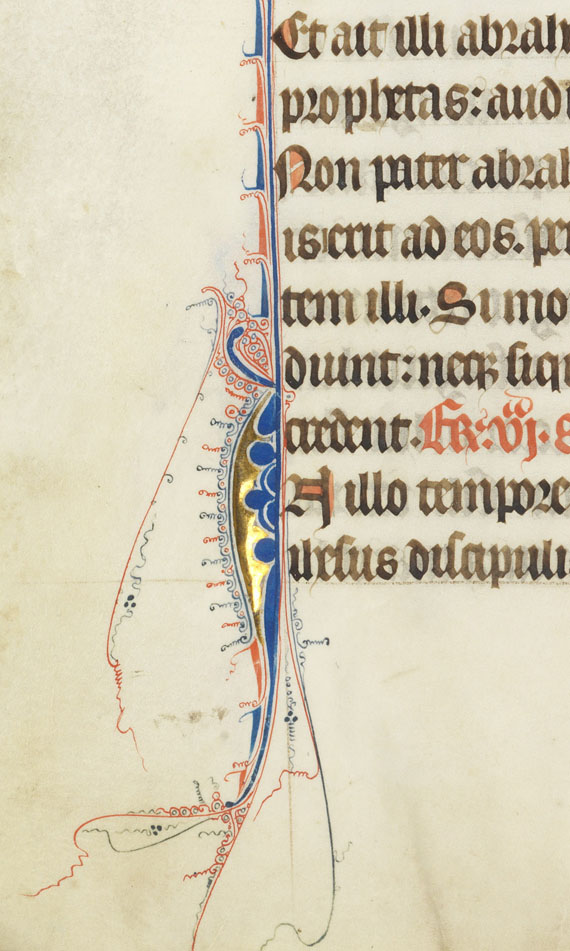 Et ait illi abrah
prophetas: audi
Non pater abrah
ierit ad eos. pe
tem illi. Si mo
diunt: neqꝫ siqu
credent. Fr̄. vjͩ. S
A illo tempore
ihesus discipuli